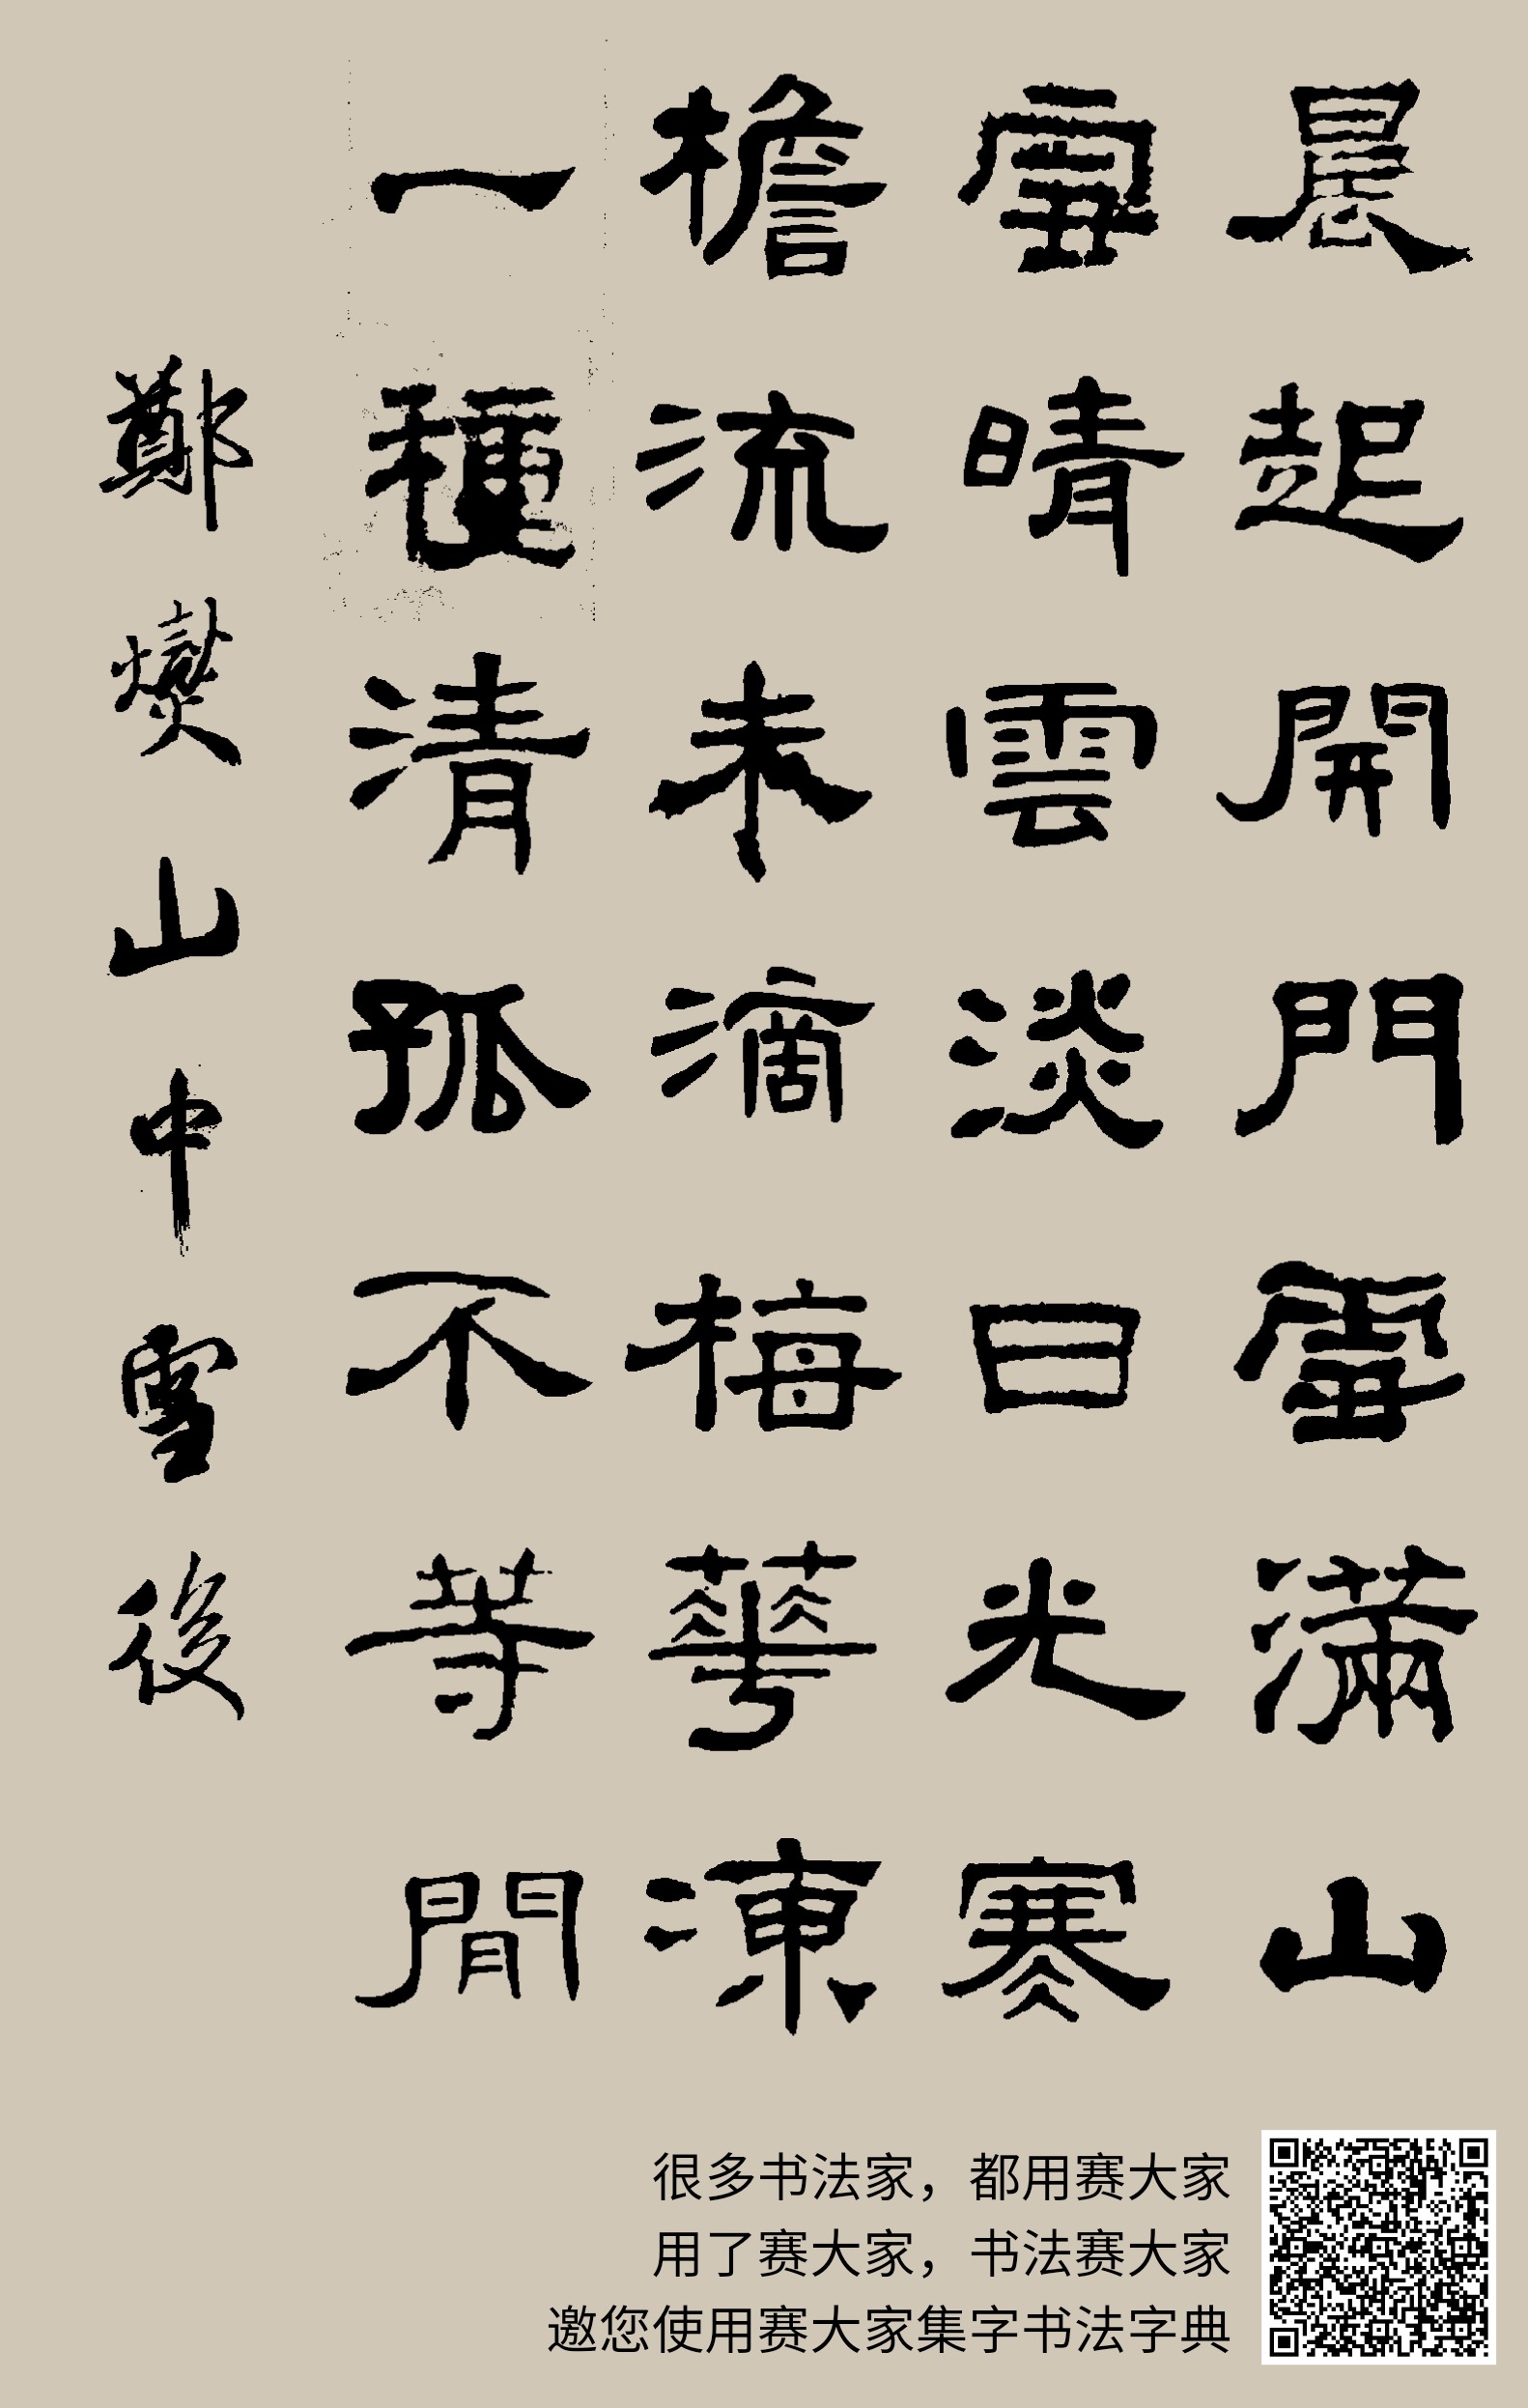 晨起開門雪滿山
雪晴雲淡日光寒
檐流未滴梅華凍
一種清孤不等閒
鄭燮山中雪後
很多书法家，都用赛大家
用了赛大家，书法赛大家
邀您使用赛大家集字书法字典